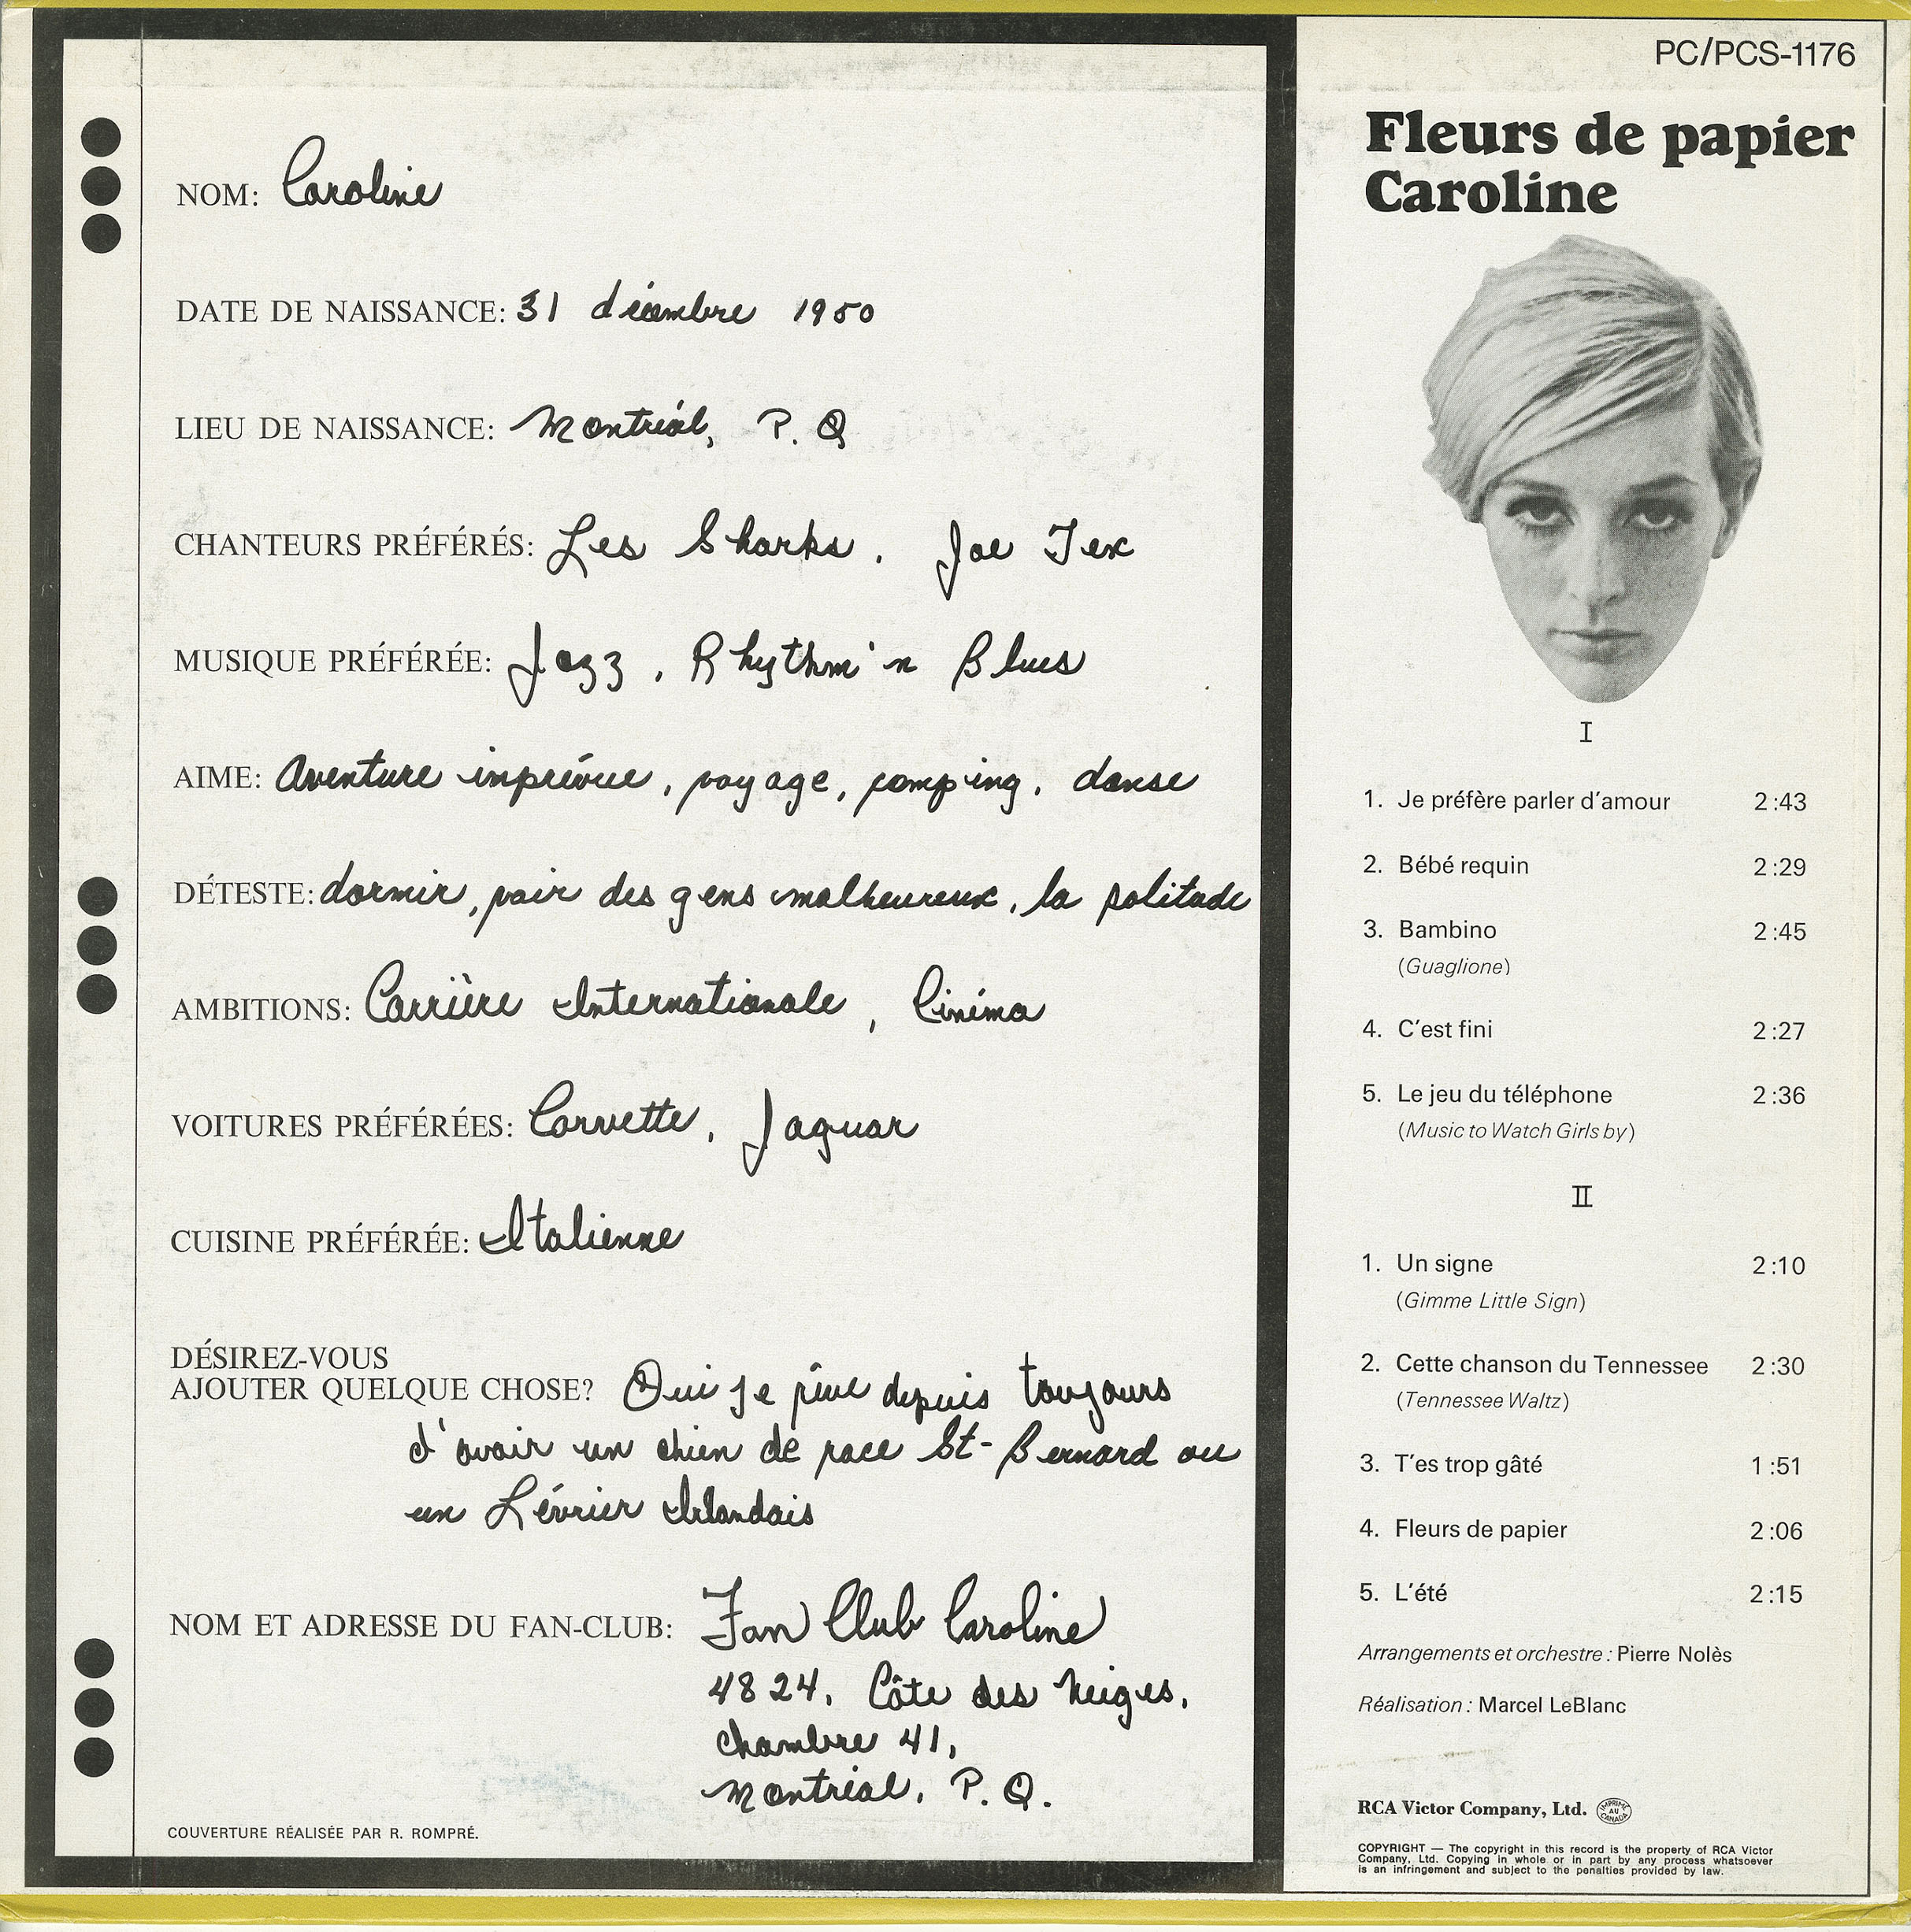 NOM: Caroline
DATE DE NAISSANCE: 31 décembre 1950
LIEU DE NAISSANCE: Montréal, P. Q
CHANTEURS PRÉFÉRÉS: Les Sharks, Joe Tex
MUSIQUE PRÉFÉRÉE: Jazz, Rhythm'n Blues
AIME: Aventure inprévue, voyage, camping, danse
DÉTESTE: dormir, voir des gens malheureux, la solitude
AMBITIONS: Carrière Internationale, Cinéma
VOITURES PRÉFÉRÉES: Corvette, Jaguar
CUISINE PRÉFÉRÉE: Italienne
DÉSIREZ-VOUS
AJOUTER QUELQUE CHOSE? Oui je rêve depuis toujours
d'avoir un chien de race St-Bernard ou
un Lévrier Irlandais
NOM ET ADRESSE DU FAN-CLUB: Fan Club Caroline
4824, Côte des Neiges,
chambre 41,
Montréal, P. Q.
COUVERTURE RÉALISÉE PAR R. ROMPRÉ.
PC/PCS-1176
Fleurs de papier
Caroline
I
1. Je préfère parler d'amour 2:43
2. Bébé requin 2:29
3. Bambino 2:45
(Guaglione)
4. C'est fini 2:27
5. Le jeu du téléphone 2:36
(Music to Watch Girls by)
II
1. Un signe 2:10
(Gimme Little Sign)
2. Cette chanson du Tennessee 2:30
(Tennessee Waltz)
3. T'es trop gâté 1:51
4. Fleurs de papier 2:06
5. L'été 2:15
Arrangements et orchestre: Pierre Nolès
Réalisation: Marcel LeBlanc
RCA Victor Company, Ltd. IMPRIMÉ AU CANADA
COPYRIGHT — The copyright in this record is the property of RCA Victor
Company, Ltd. Copying in whole or in part by any process whatsoever
is an infringement and subject to the penalties provided by law.